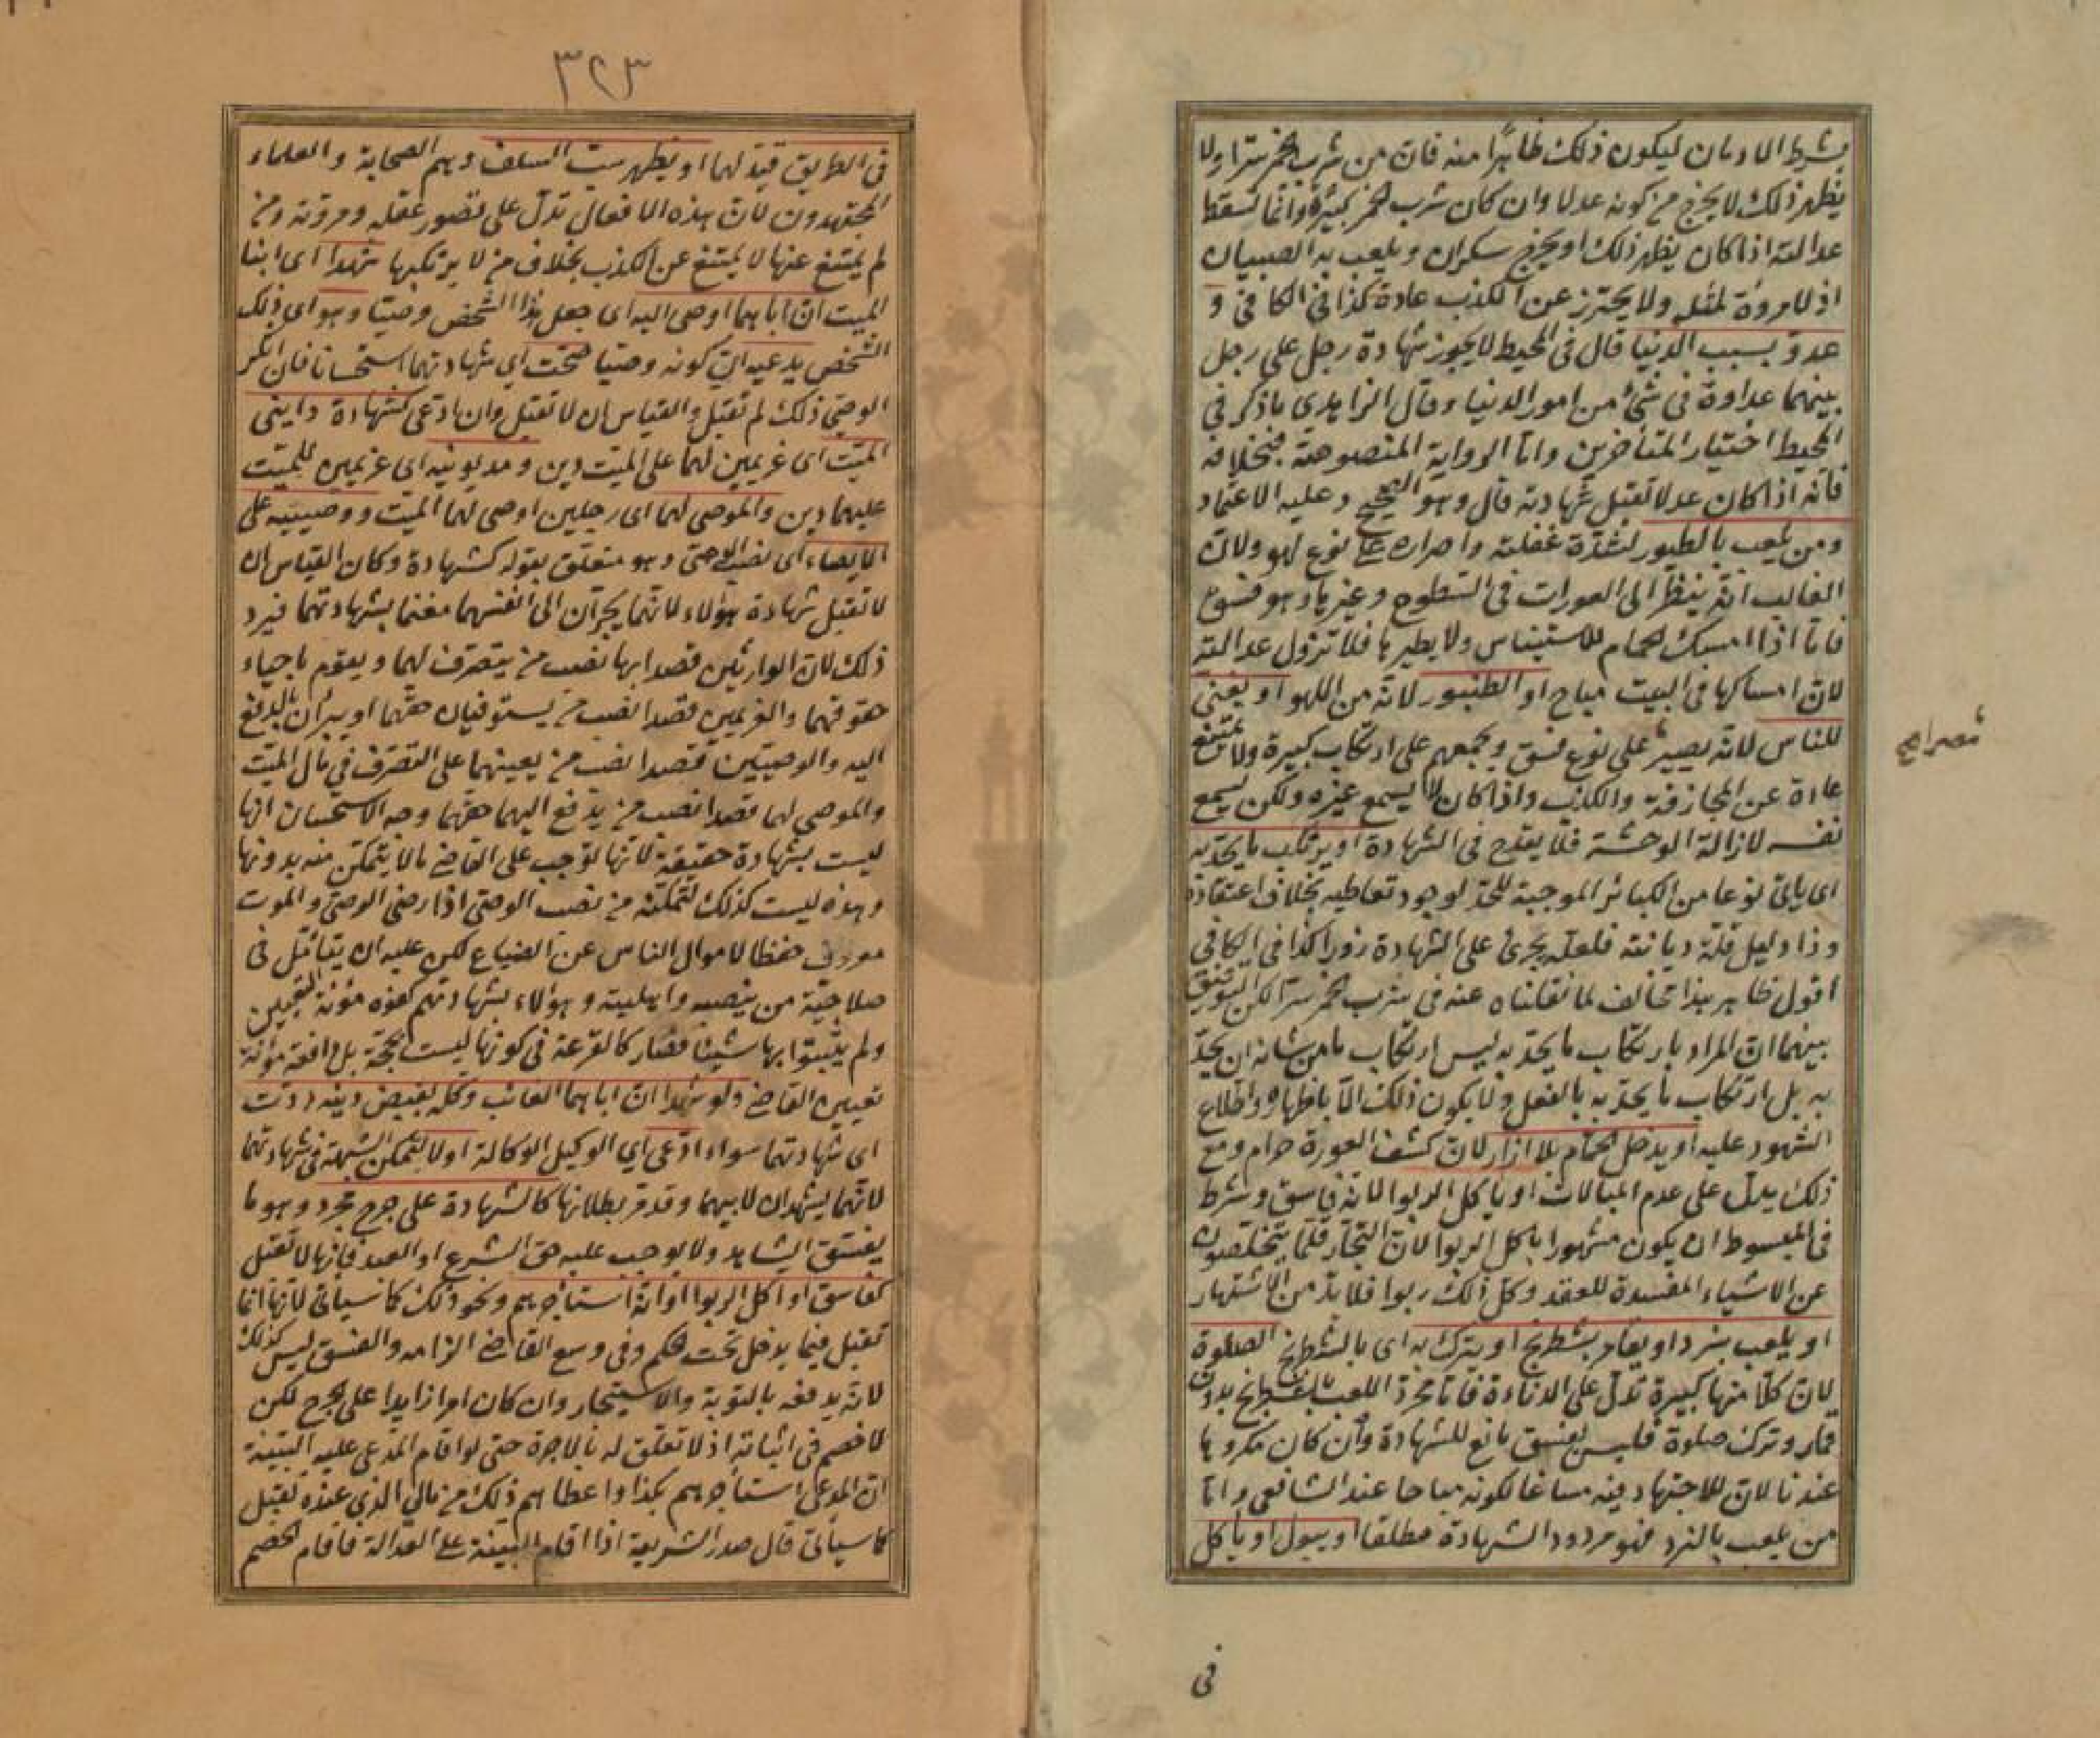 بشرط الادمان ليكون ذلك ظاهرا منه فان من شرب الخمر سترا ولا
يظهر ذلك لا يخرج من كونه عدلا وان كان شرب الخمر كبيرة وانما تسقط
عدالته اذا كان يظهر ذلك او يخرج سكران ويلعب به الصبيان
اذ لا مروة لمثله ولا يحترز عن الكذب عادة كذا في الكافي و
عدو بسبب الدنيا قال في المحيط لا يجوز شهادة رجل على رجل
بينهما عداوة في شئ من امور الدنيا وقال الزاهدي ما ذكر في
المحيط اختيار المتأخرين واما الرواية المنصوصة فبخلافه
فانه اذا كان عدلا تقبل شهادته قال وهو الصحيح وعليه الاعتماد
ومن يلعب بالطيور لشدة غفلته واصراره على نوع لهو ولان
الغالب انه ينظر الى العورات في السطوح وغيرها وهو فسق
فاما اذا امسك الحمام للاستيناس ولا يطيرها فلا تزول عدالته
لان امساكها في البيت مباح او الطنبور لانه من اللهو او يغني
للناس لانه يصير على نوع فسق ويجمعهم على ارتكاب كبيرة ولا يمتنع
عادة عن المجازفة والكذب واذا كان لا يسمع غيره ولكن يسمع
نفسه لازالة الوحشة فلا يقدح في الشهادة او يرتكب ما يحد به
اى يأتي نوعا من الكبائر الموجبة للحد لوجود تعاطيه بخلاف اعتقاده
وذا دليل قلة ديانته فلعله يجرئ على الشهادة زورا كذا في الكافي
اقول ظاهر هذا مخالف لما نقلناه عنه في شرب الخمر سترا لكن التوفيق
بينهما ان المراد بارتكاب ما يحد به ليس ارتكاب ما من شانه ان يحد
به بل ارتكاب ما يحد به بالفعل ولا يكون ذلك الا باظهاره واطلاع
الشهود عليه او يدخل الحمام بلا ازار لان كشف العورة حرام ومع
ذلك يدل على عدم المبالات او يأكل الربوا لانه فاسق وشرط
في المبسوط ان يكون مشهورا باكل الربوا لان التجار قلما يتخلصون
عن الاشياء المفسدة للعقد وكل ذلك ربوا فلا بد من الاشتهار
او يلعب بنرد او يقامر بشطرنج او يترك به اى بالشطرنج الصلوة
لان كلا منها كبيرة تدل على الدناءة فاما مجرد اللعب بالشطرنج بدون
قمار وترك صلوة فليس بفسق مانع للشهادة وان كان مكروها
عندنا لان للاجتهاد فيه مساغا لكونه مباحا عند الشافعي واما
من يلعب بالنرد فهو مردود الشهادة مطلقا او يبول او يأكل
في
٣٢٣
في الطريق قيد لهما او يظهر سب السلف وهم الصحابة والعلماء
المجتهدون لان هذه الافعال تدل على قصور عقله ومروته ومن
لم يمتنع عنها لا يمتنع عن الكذب بخلاف من لا يرتكبها شهدا اى ابنا
الميت ان اباهما اوصى اليه اى جعل هذا الشخص وصيا وهو اى ذلك
الشخص يدعيه اى كونه وصيا صحت اي شهادتهما استحسانا فان انكر
الوصي ذلك لم تقبل والقياس ان لا تقبل وان ادعى كشهادة دايني
الميت اى غريمين لهما على الميت دين ومديونيه اى غريمين للميت
عليهما دين والموصى لهما اى رجلين اوصى لهما الميت ووصييه على
الايصاء اى نصب الوصي وهو متعلق بقوله كشهادة وكان القياس ان
لا تقبل شهادة هؤلاء لانهما يجران الى انفسهما مغنما بشهادتهما فيرد
ذلك لان الوارثين قصدا بها نصب من يتصرف لهما ويقوم باحياء
حقوقهما والغريمين قصدا نصب من يستوفيان حقهما او يبرأن بالدفع
اليه والوصيين قصدا نصب من يعينهما على التصرف في مال الميت
والموصى لهما قصدا نصب من يدفع اليهما حقهما وجه الاستحسان انها
ليست بشهادة حقيقة لانها توجب على القاضي ما لا يتمكن منه بدونها
وهذه ليست كذلك لتمكنه من نصب الوصي اذا رضي الوصي والموت
معروف حفظا لاموال الناس عن الضياع لكن عليه ان يتأمل في
صلاحية من ينصبه واهليته وهؤلاء بشهادتهم كفوه مؤنة التعيين
ولم يثبتوا بها شيئا فصار كالقرعة في كونها ليست بحجة بل دافعة مؤنة
تعيين القاضي ولو شهدا ان اباهما الغائب وكله بقبض دينه ردت
اى شهادتهما سواء ادعى اي الوكيل الوكالة اولا لتمكن الشبهة في شهادتهما
لانهما يشهدان لابيهما وقد مر بطلانها كالشهادة على جرح مجرد وهو ما
يفسق الشاهد ولا يوجب عليه حق الشرع او العبد فانها لا تقبل
كفاسق او آكل الربوا او انه استأجرهم ونحو ذلك كما سيأتي لانها انما
تقبل فيما يدخل تحت الحكم وفي وسع القاضي الزامه والفسق ليس كذلك
لانه يدفعه بالتوبة والاستيجار وان كان امرا زايدا على الجرح لكن
لا خصم في اثباته اذ لا تعلق له بالاجرة حتى لو اقام المدعى عليه البينة
ان المدعي استأجرهم بكذا واعطاهم ذلك من مالي الذي عنده تقبل
كما سيأتي قال صدر الشريعة اذا اقام البينة على العدالة فاقام الخصم